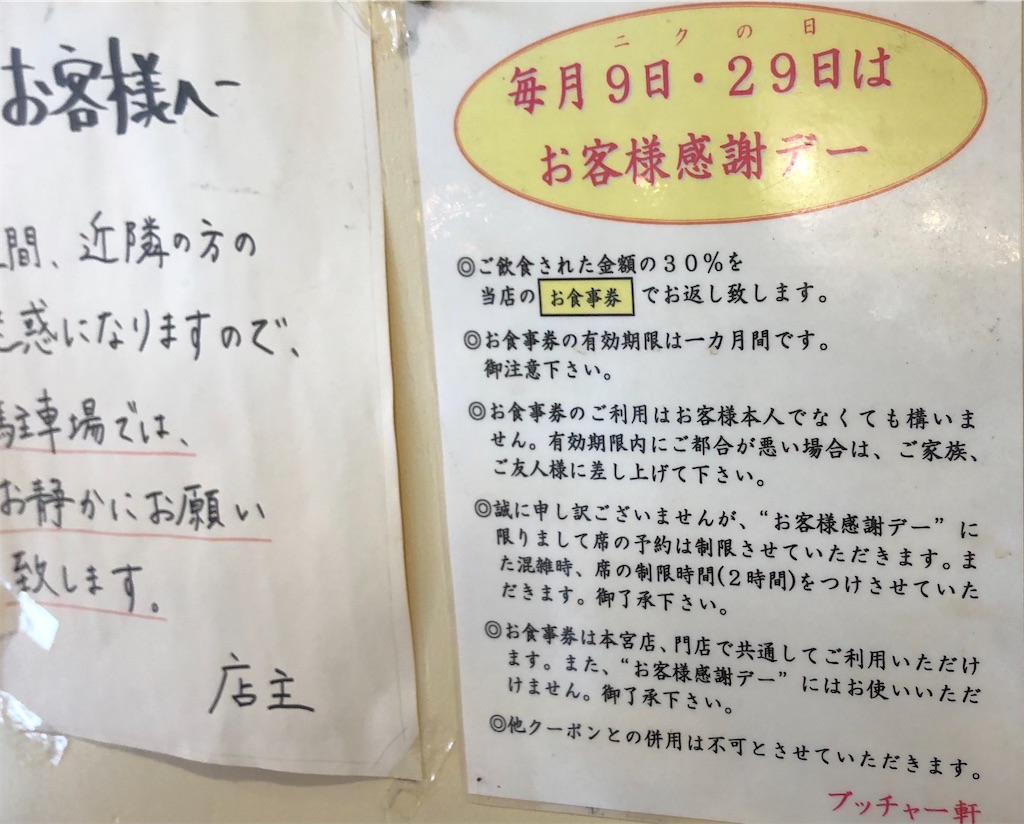 お客様へ
間、近隣の方の
迷惑になりますので、
駐車場では、
お静かにお願い
致します。
店主
ニクの日
毎月9日・29日は
お客様感謝デー
◎ご飲食された金額の30%を
当店の お食事券 でお返し致します。
◎お食事券の有効期限は一カ月間です。
御注意下さい。
◎お食事券のご利用はお客様本人でなくても構いま
せん。有効期限内にご都合が悪い場合は、ご家族、
ご友人様に差し上げて下さい。
◎誠に申し訳ございませんが、“お客様感謝デー”に
限りまして席の予約は制限させていただきます。ま
た混雑時、席の制限時間(2時間)をつけさせていた
だきます。御了承下さい。
◎お食事券は本宮店、門店で共通してご利用いただけ
ます。また、“お客様感謝デー”にはお使いいただ
けません。御了承下さい。
◎他クーポンとの併用は不可とさせていただきます。
ブッチャー軒